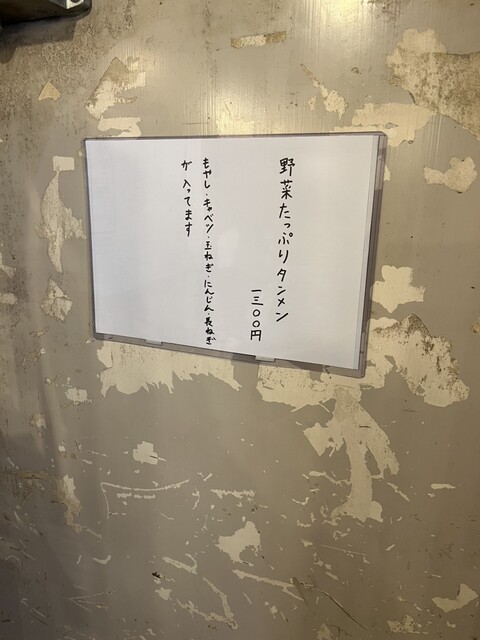 野菜たっぷりタンメン
一三〇〇円
もやし・キャベツ・玉ねぎ・にんじん・長ねぎ
が入ってます